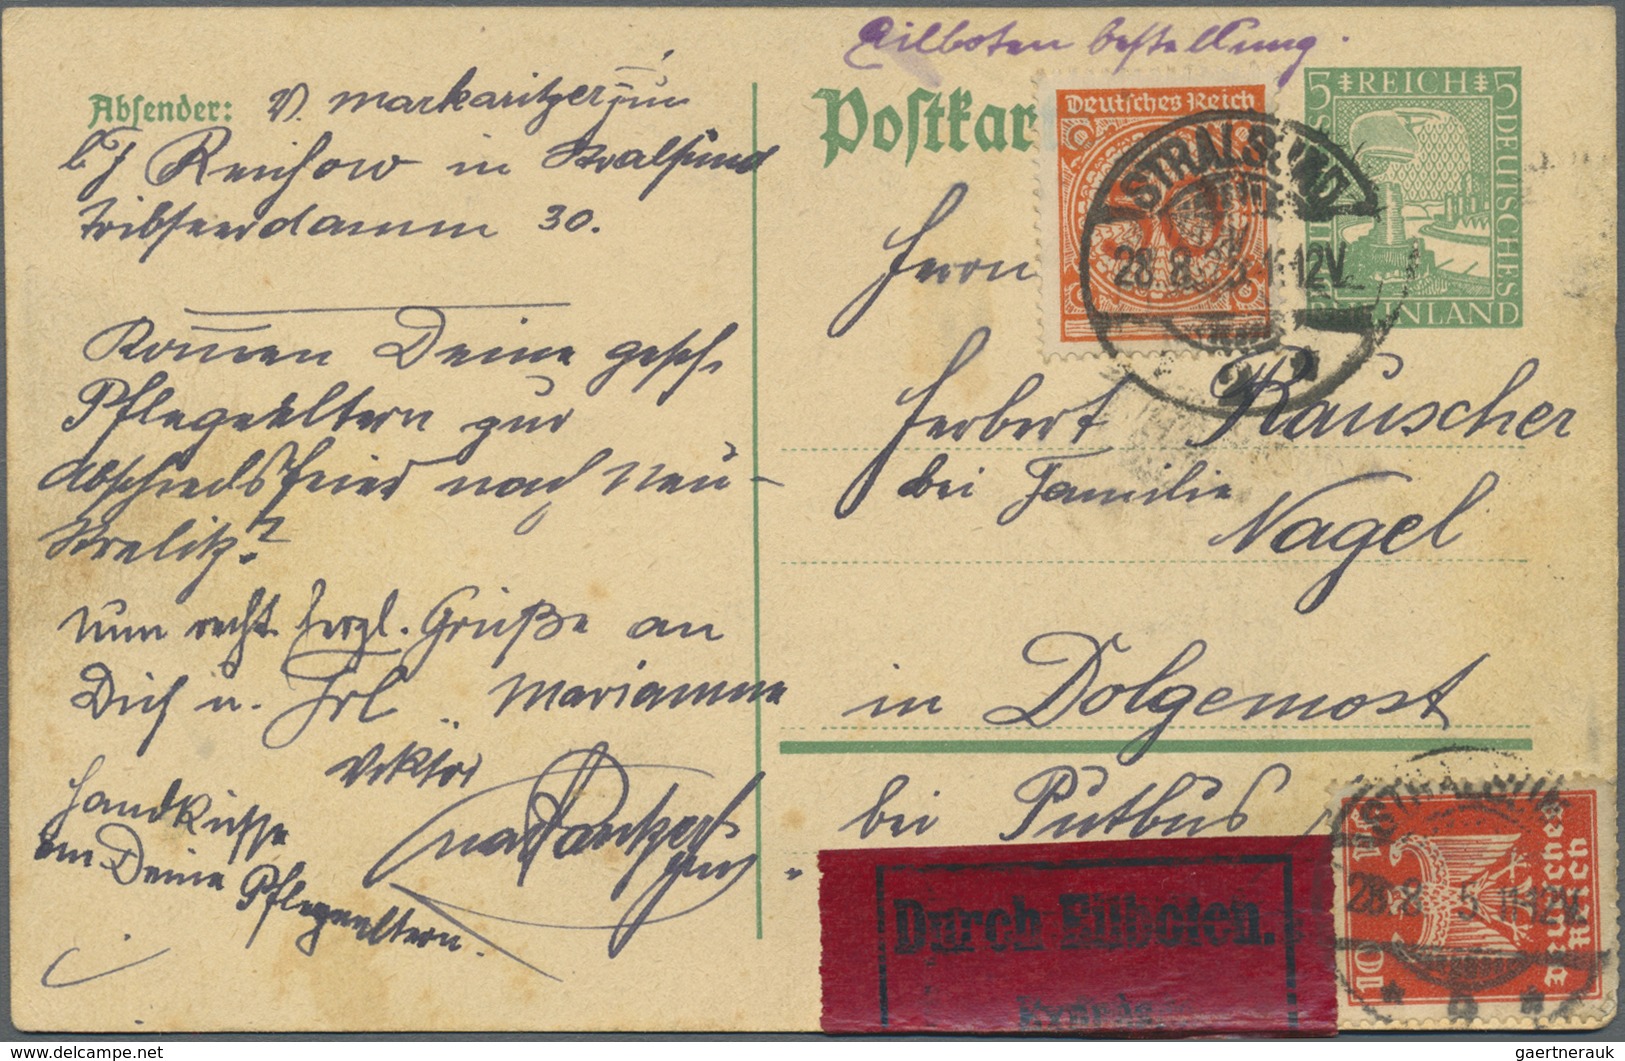 Eilboten bestellung.
Absender: v. Markaritzer jun
b/ Reichow in Stralsund
Tribseerdamm 30.
Kom̄en Deine gesch.
Pflegeeltern zur
Abschiedsfeier nach Neu-
strelitz?
Nun recht herzl. Grüße an
Dich u. Frl. Marianne
Viktor
jun.
Handküsse
an Deine Pflegeeltern.
Postkar
Deutsches Reich
50
5 REICH 5
DEUTSCHES
INLAND
STRALSUND
28.8. 5 11-12V.
Herrn
Herbert Rauscher
bei Familie
Nagel
in Dolgemost
bei Putbus
Durch Eilboten.
Exprès.
10 10
Deutsches
Reich
STRALSUND
28.8. 5 11-12V.
* b *
gaertnerauk